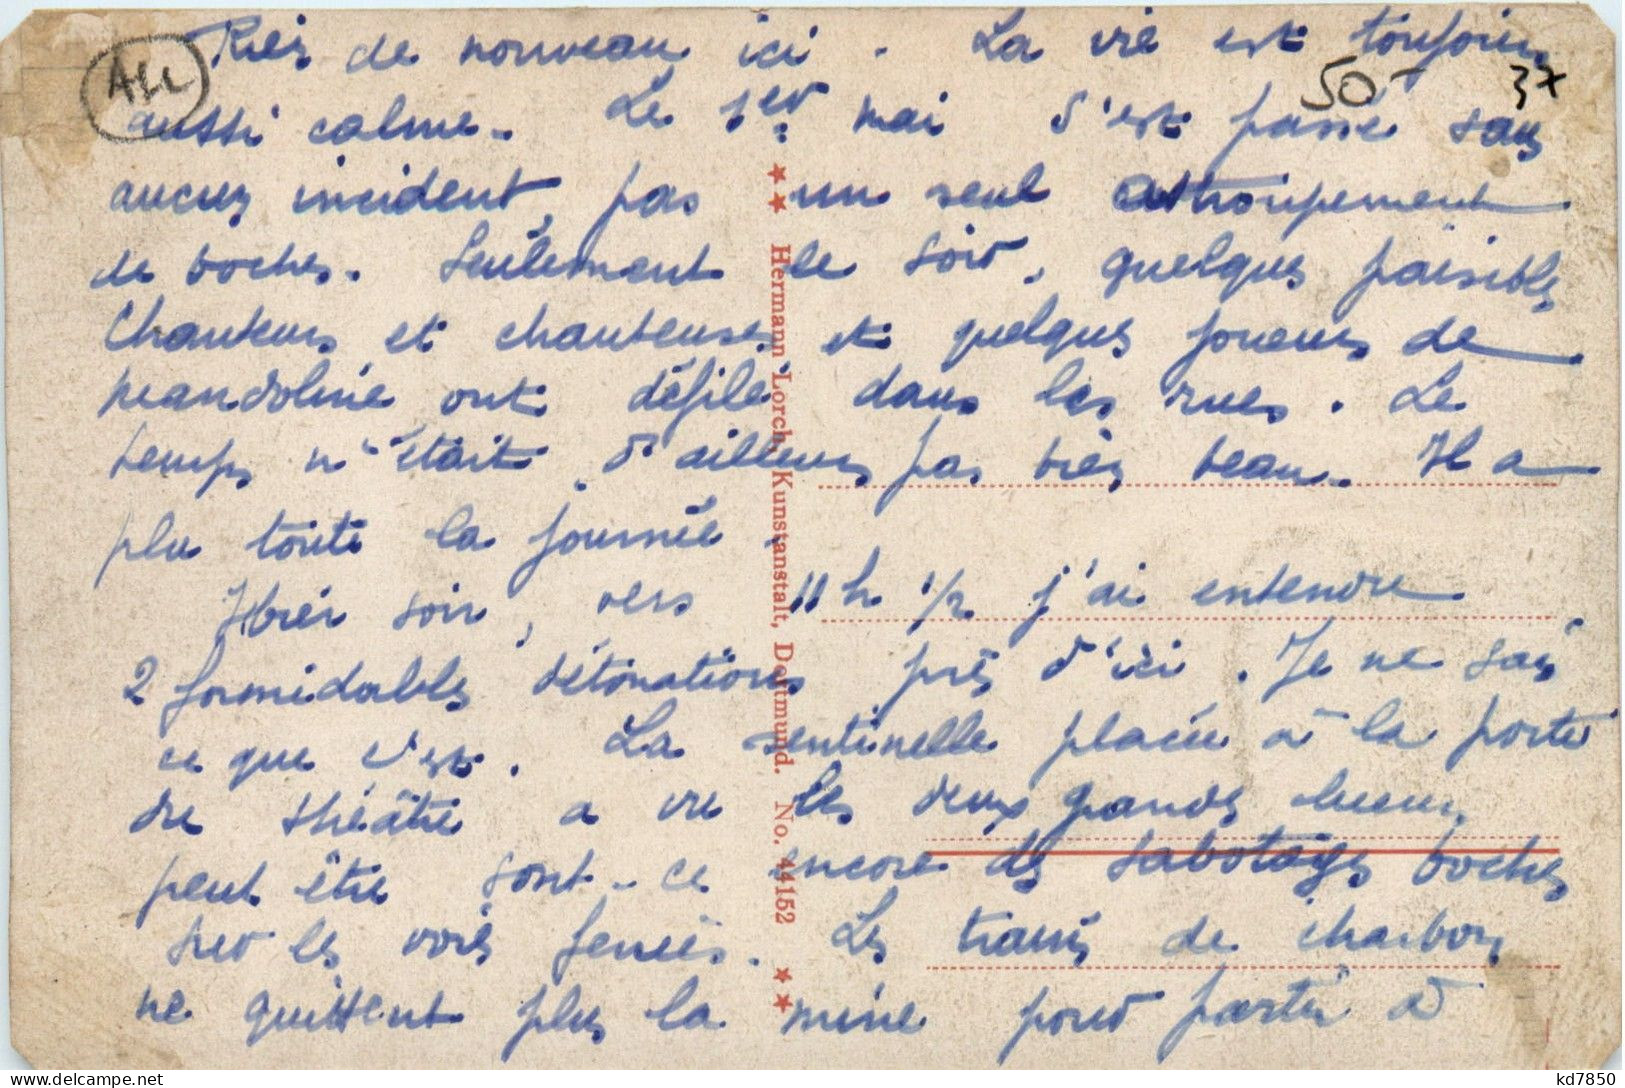 Rien de nouveau ici. La vie est toujours
ALL
50 -
37
aussi calme. Le 1er mai s'est passé sans
aucun incident, pas un seul attroupement
de boches. Seulement le soir, quelques paisibles
chanteurs et chanteuses et quelques joueurs de
mandoline ont défilé dans les rues. Le
temps n'était d'ailleurs pas bien beau. Il a
plu toute la journée.
Hier soir, vers 11 h 1/2 j'ai entendu
2 formidables détonations près d'ici. Je ne sais
ce que c'est. La sentinelle placée à la porte
du théâtre a vu les deux grandes lueurs,
peut être sont-ce encore des sabotages boches
sur les voies ferrées. Les trains de charbon
ne quittent plus la mine pour partir à
★★ Hermann Lorch, Kunstanstalt, Dortmund. No. 44152 ★★
kd7850